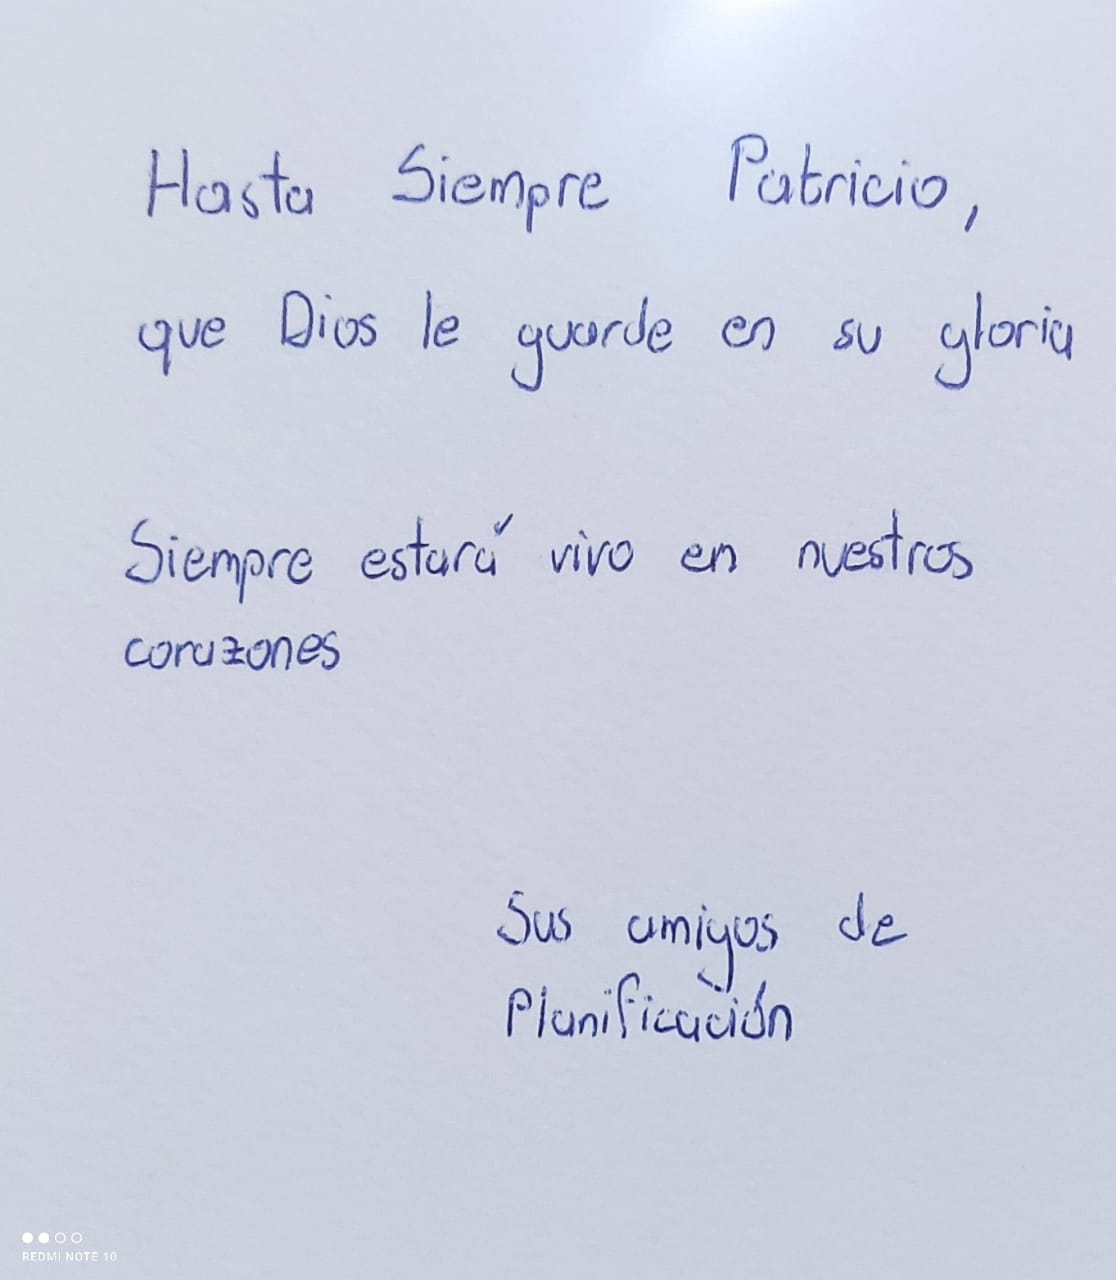 Hasta Siempre Patricio,
que Dios le guarde en su gloria
Siempre estará vivo en nuestros
corazones
Sus amigos de
Planificación
REDMI NOTE 10